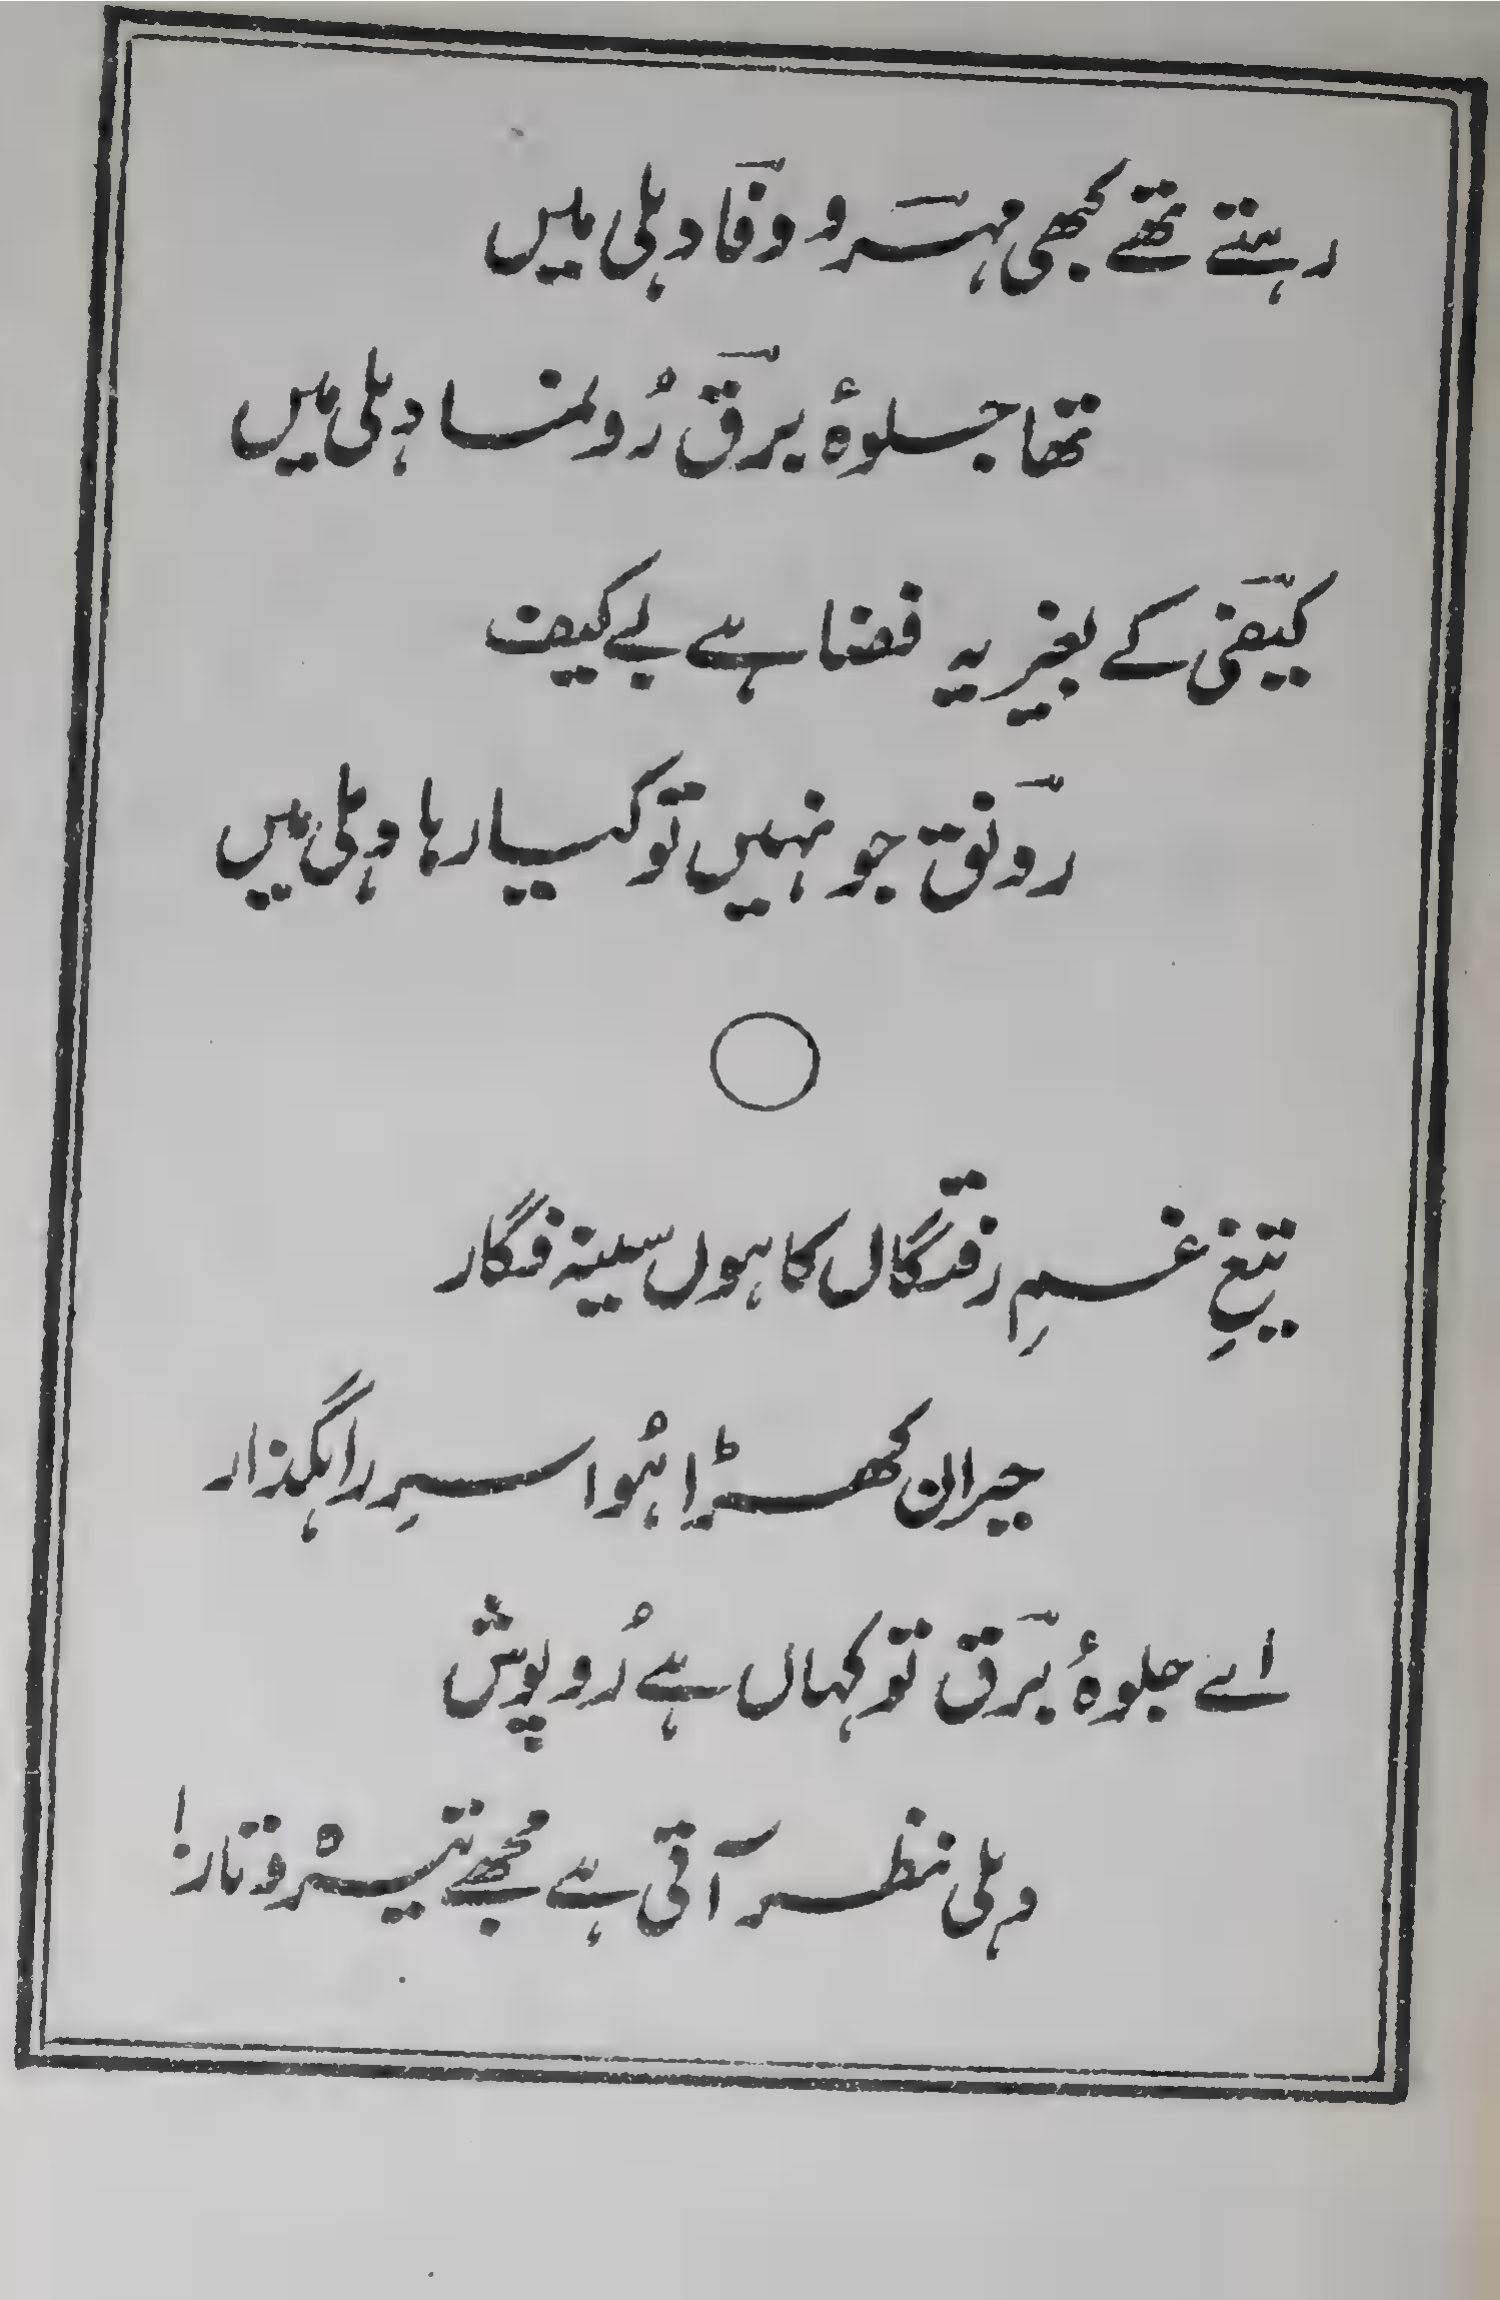 رہتے تھے کبھی مہرؔ و وفاؔ دہلی میں
تھا جلوۂ برقؔ رُونما دہلی میں
کیفیؔ کے بغیر یہ فضا ہے بے کیف
رونقؔ جو نہیں تو کیا رہا دہلی میں
تیغِ غمِ رفتگاں کا ہوں سینہ فگار
حیران کھڑا ہُوا سرِ راہگذار
اے جلوۂ برقؔ تو کہاں ہے رُوپوش
دہلی نظر آتی ہے مجھے تیرہ و تار!